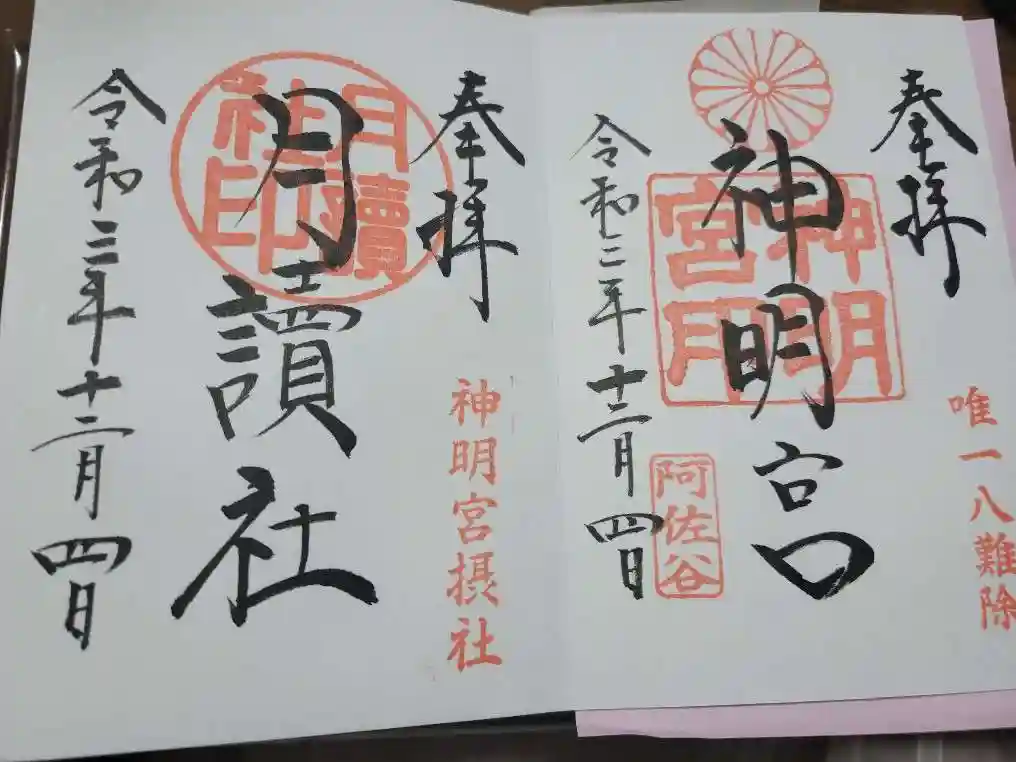 奉拝
唯一八難除
神明宮
神明宮
阿佐谷
令和三年十二月四日
奉拝
神明宮摂社
月讀社
月讀
社印
令和三年十二月四日